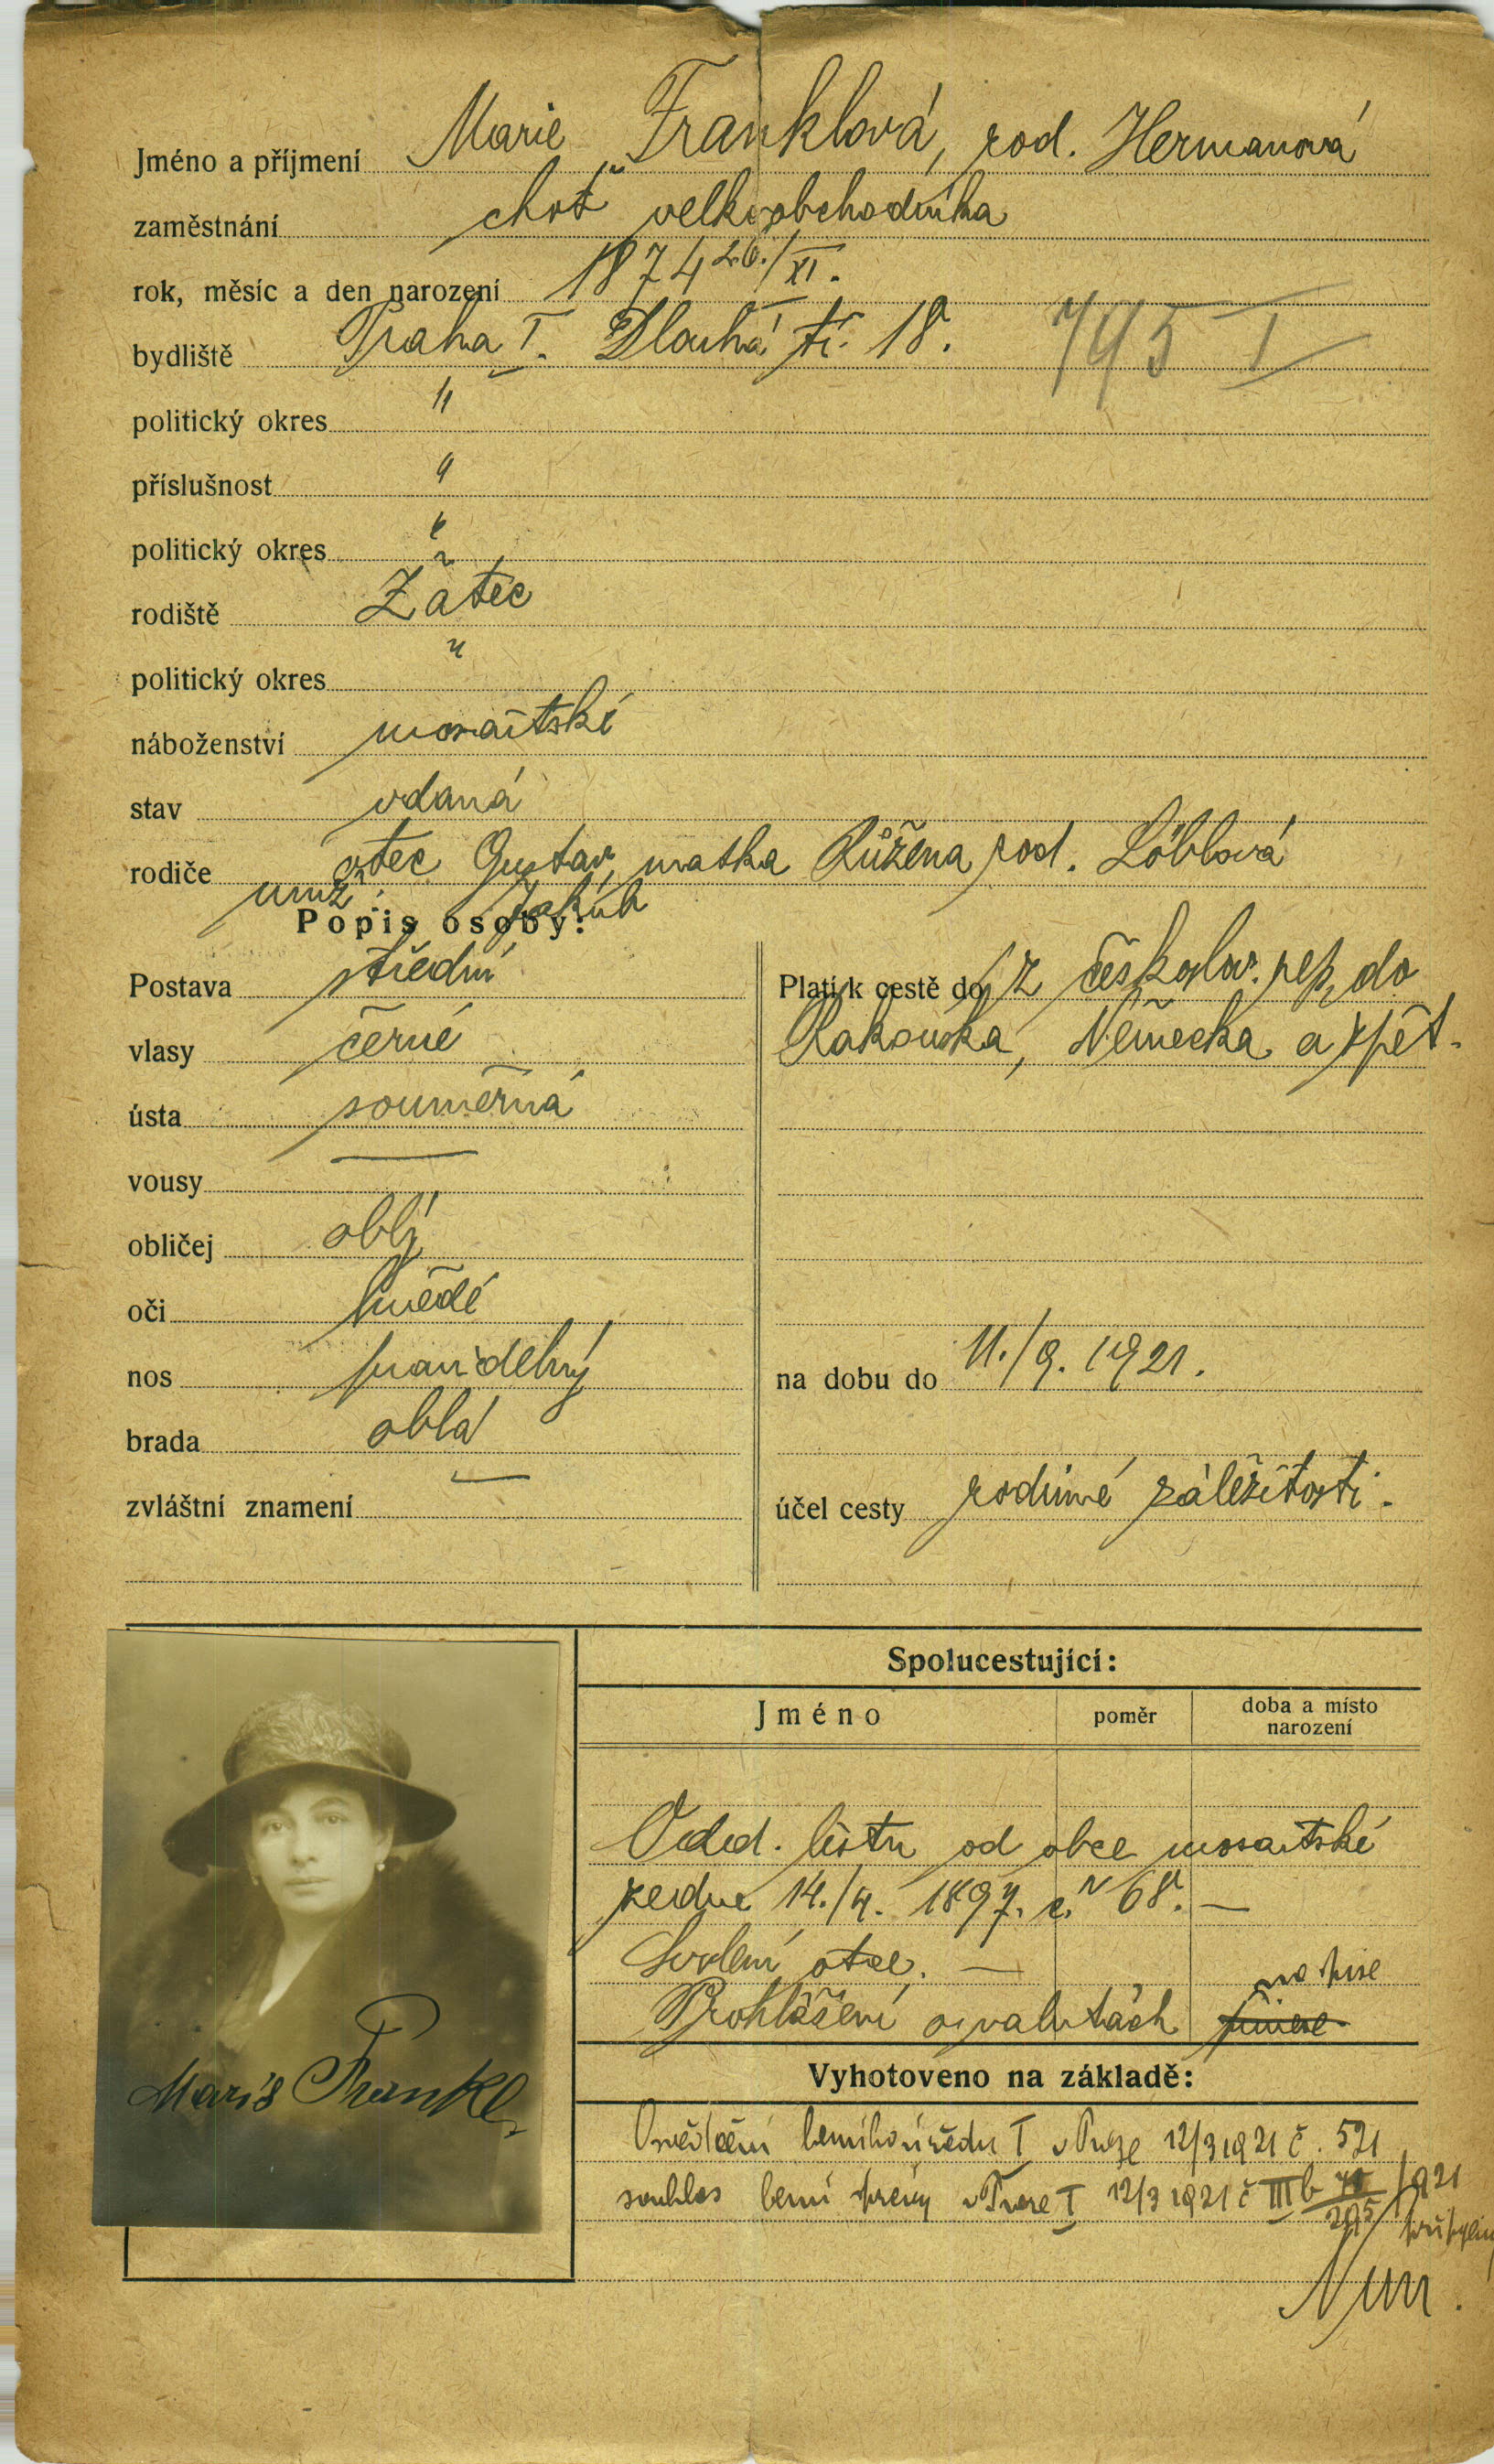 Jméno a příjmení Marie Franklová, rod. Hermanová
zaměstnání choť velkoobchodníka
rok, měsíc a den narození 1874 26./XI.
bydliště Praha I. Dlouhá tř. 18. 795 I
politický okres "
příslušnost "
politický okres "
rodiště Žatec
politický okres "
náboženství mosaitské
stav vdaná
rodiče otec Gustav, matka Růžena rod. Löblová
muž: Jakub
Popis osoby:
Postava střední
vlasy černé
ústa souměrná
vousy —
obličej oblý
oči hnědé
nos pravidelný
brada oblá
zvláštní znamení —
Platí k cestě do z českoslov. rep. do
Rakouska, Německa a zpět.
na dobu do 11./9. 1921.
účel cesty rodinné záležitosti.
Spolucestující:
Jméno poměr doba a místo narození
Odd. listu od obce mosaitské
ze dne 14./4. 1897. č. 68. —
Svolení otce. —
Prohlášení o valutách
Marie Frankl
Vyhotoveno na základě:
Osvědčení berního úřadu I v Praze 12/3 1921 č. 521
souhlas berní správy v Praze I 12/3 1921 č III b /1921